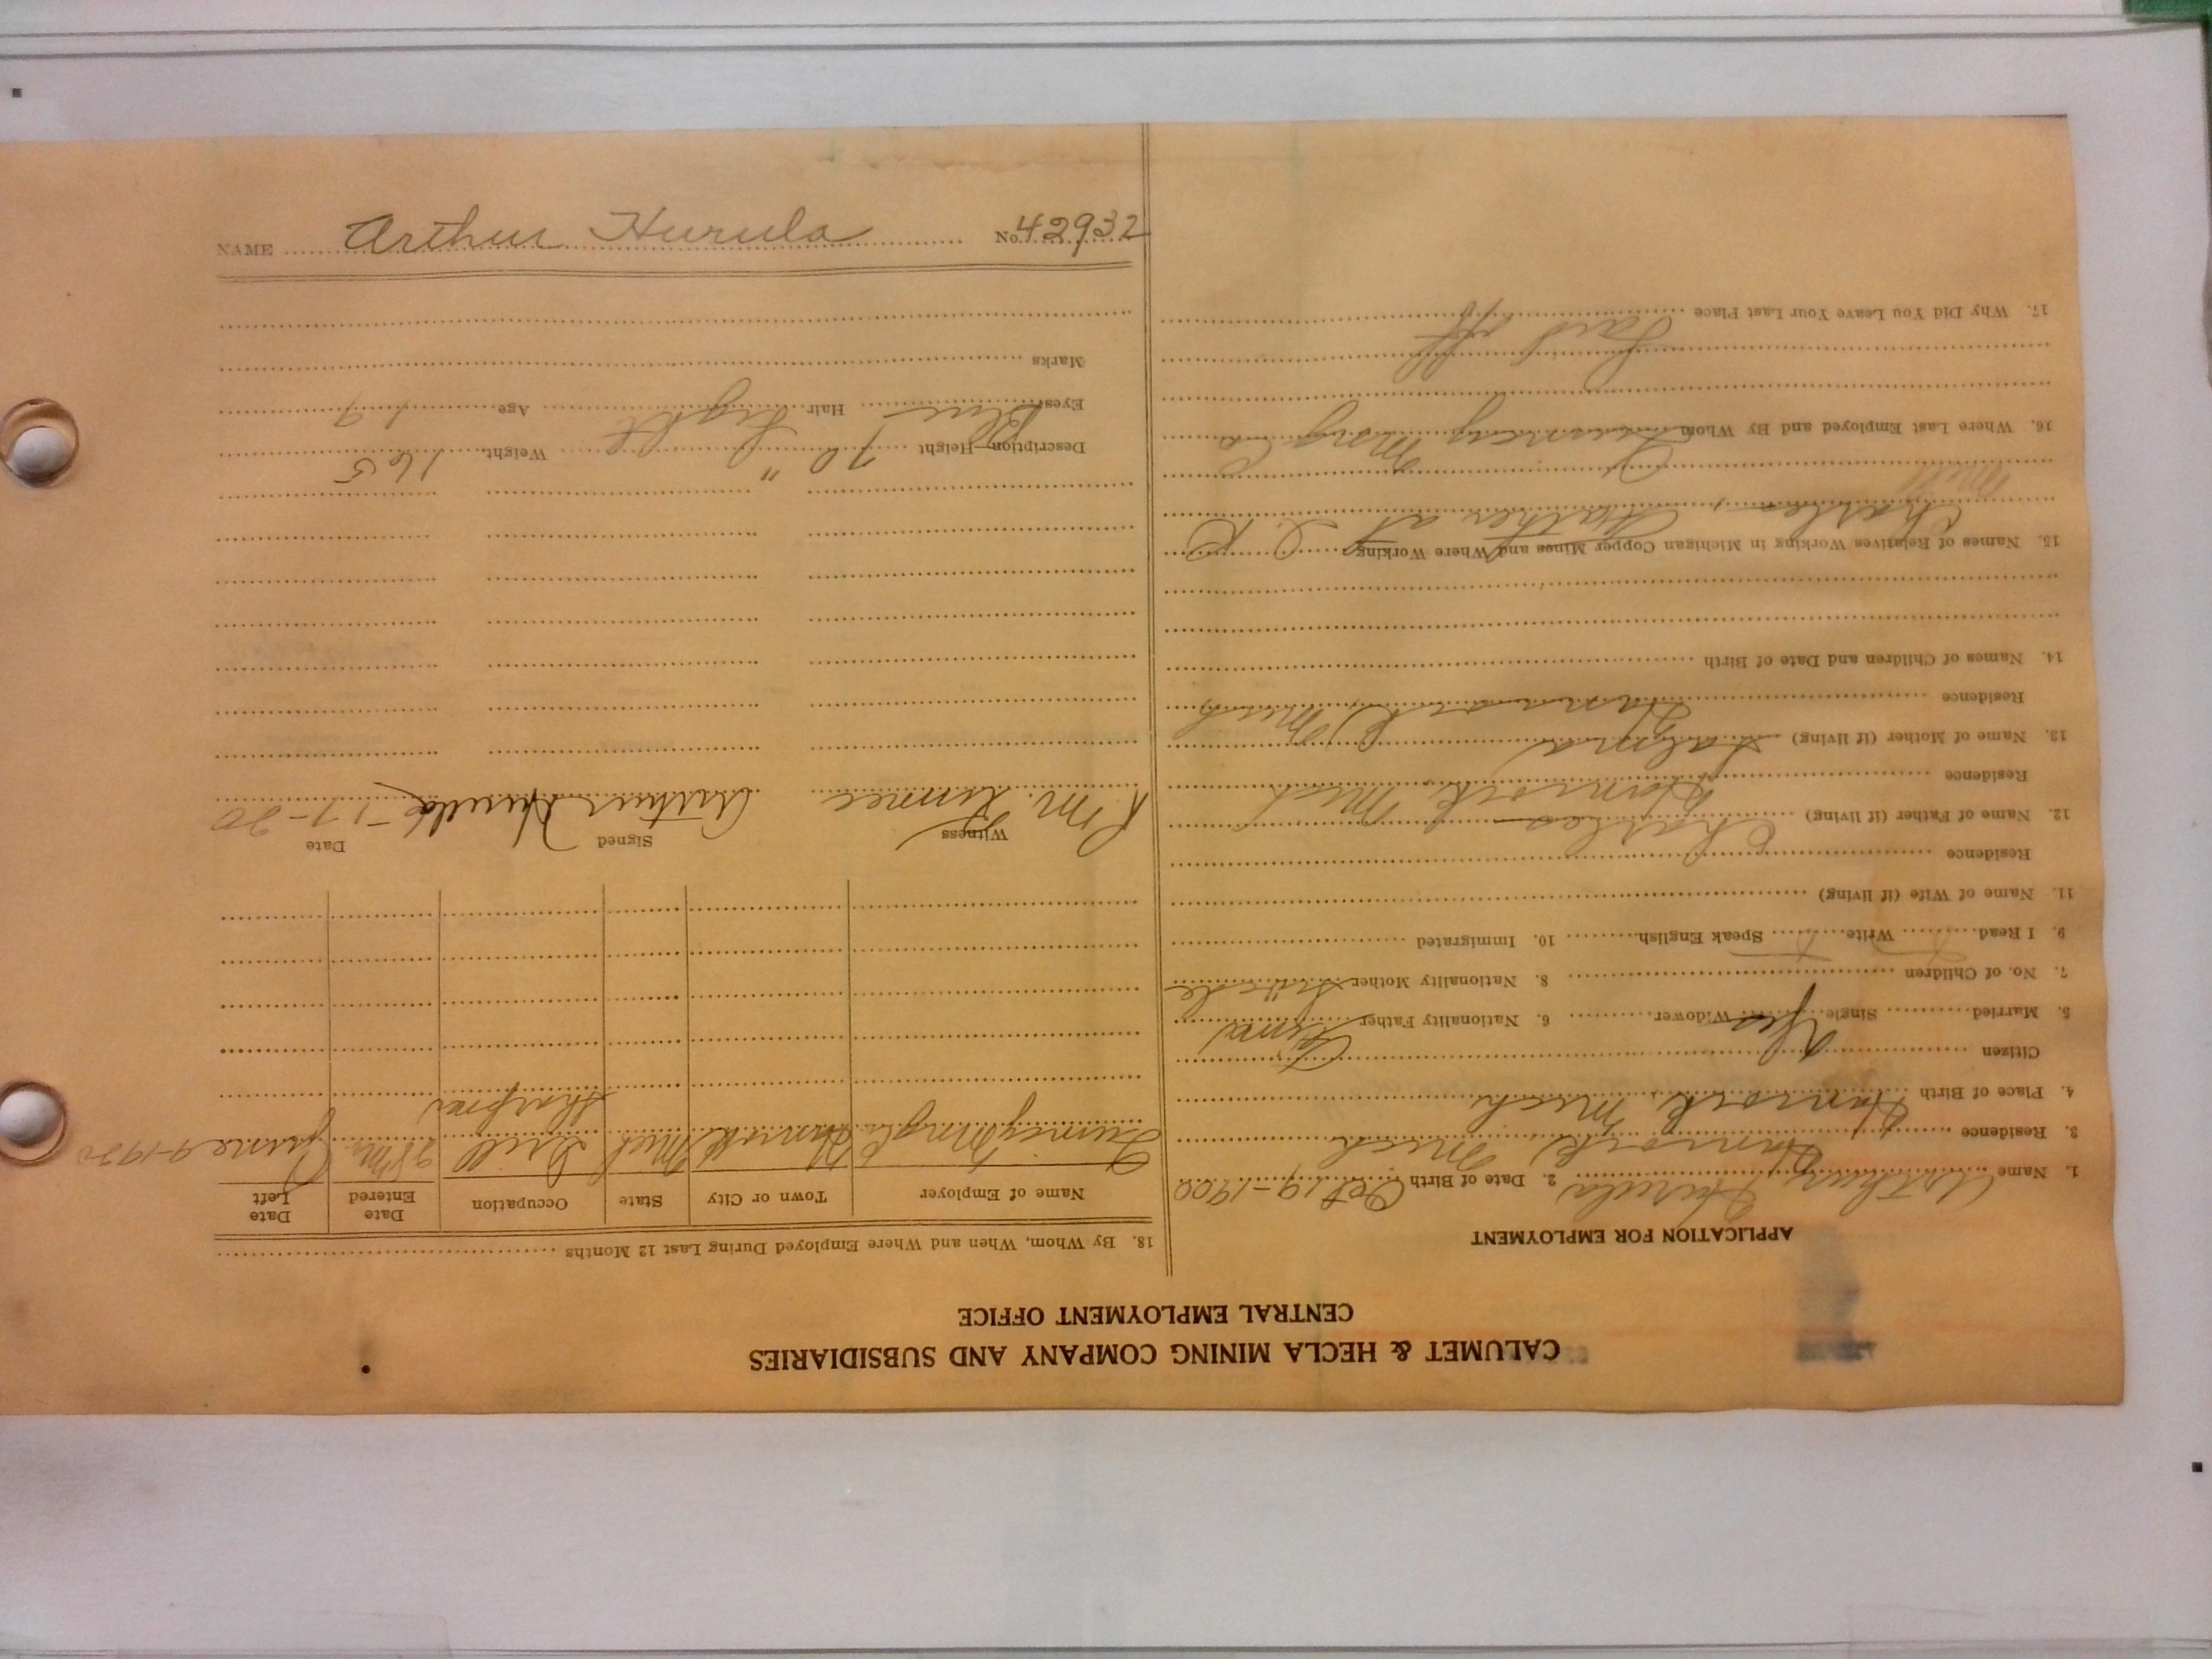 CALUMET & HECLA MINING COMPANY AND SUBSIDIARIES
CENTRAL EMPLOYMENT OFFICE
APPLICATION FOR EMPLOYMENT
1. Name Arthur Hurula 2. Date of Birth Oct 19-1900
3. Residence Hancock, Mich
4. Place of Birth Hancock, Mich
Citizen Yes
5. Married Single Widower 6. Nationality Father Finn
7. No. of Children 8. Nationality Mother Swede
9. I Read Write Speak English 10. Immigrated
11. Name of Wife (if living)
Residence
12. Name of Father (if living) Charles
Residence Hancock, Mich
13. Name of Mother (if living) Salma
Residence Hancock, Mich
14. Names of Children and Date of Birth
15. Names of Relatives Working in Michigan Copper Mines and Where Working
Charles, Father at
Mill
16. Where Last Employed and By Whom Quincy Mng Co
17. Why Did You Leave Your Last Place
Laid off
18. By Whom, When and Where Employed During Last 12 Months
Name of Employer Town or City State Occupation Date Entered Date Left
Quincy Mng Co Hancock Mich Drill Sharpner June 9-1920
Witness Signed Date
Arthur Hurula 17-20
Description—Height 70" Weight 165
Eyes Blue Hair Light Age 19
Marks
NAME Arthur Hurula No. 42932